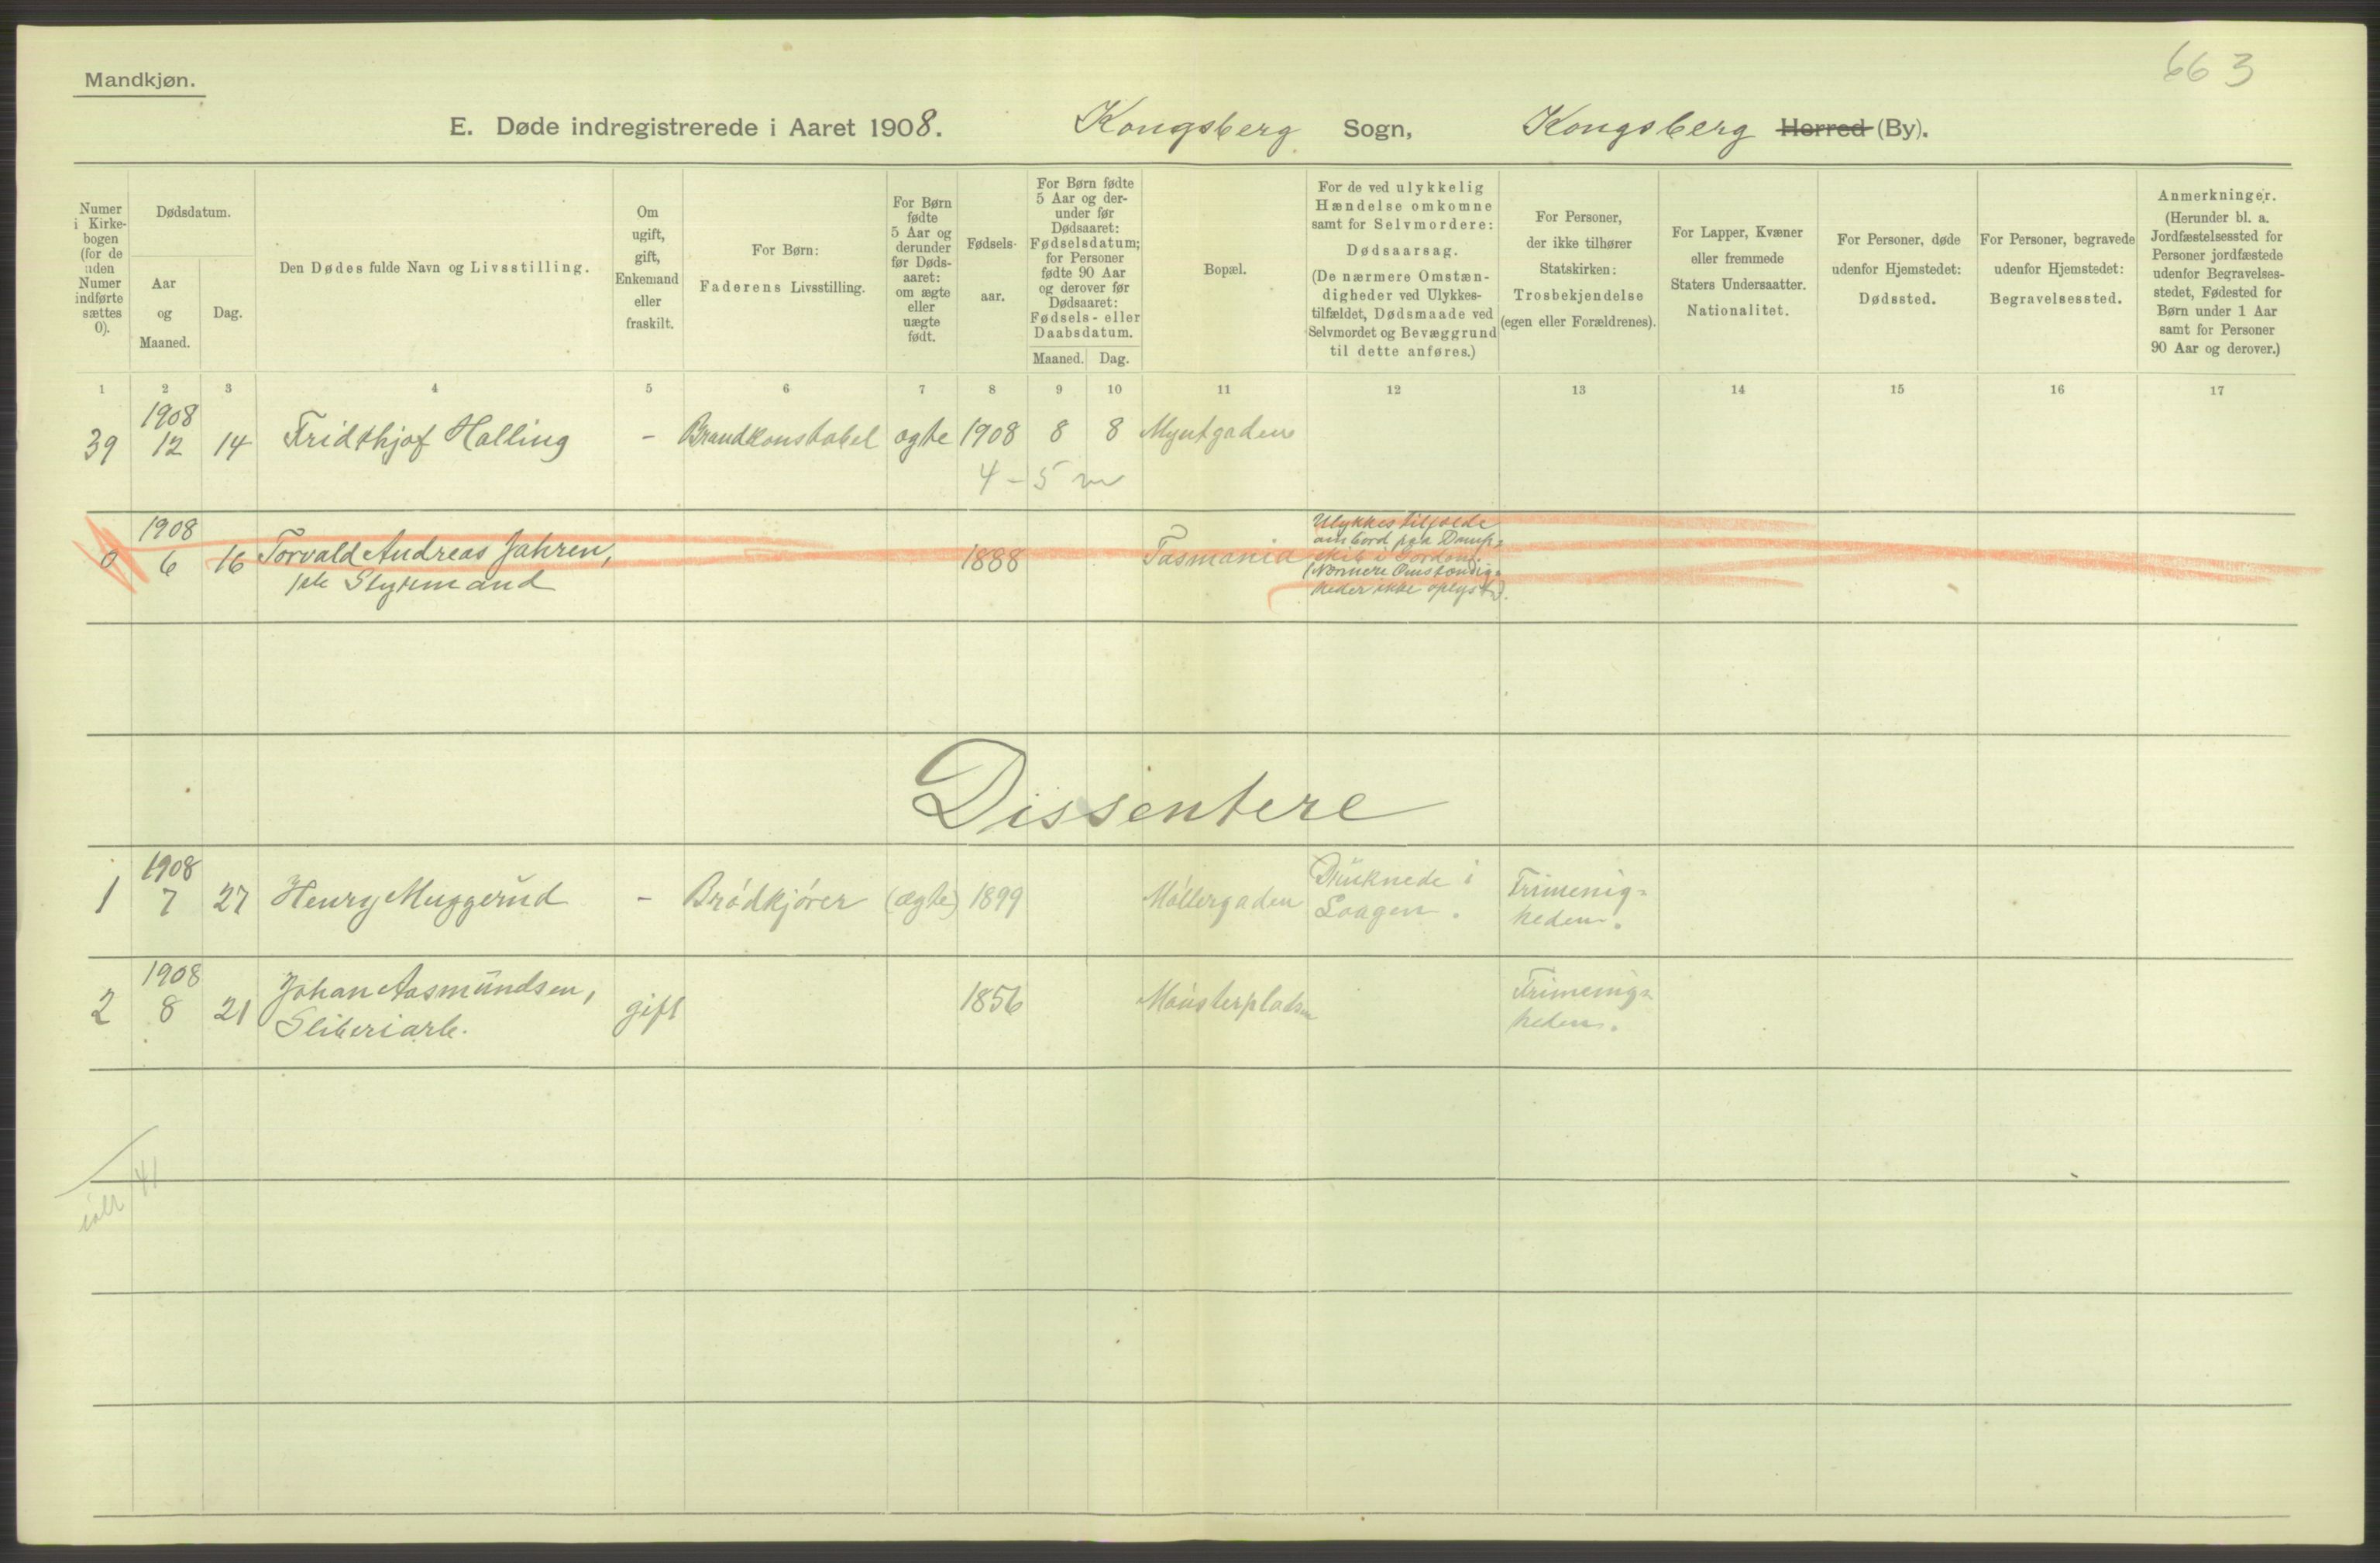 663
Mandkjøn.
E. Døde indregistrerede i Aaret 1908. Kongsberg Sogn, Kongsberg Herred (By).
Numer i Kirke-bogen (for de uden Numer indførte sættes 0).
Dødsdatum.
Aar og Maaned.
Dag.
Den Dødes fulde Navn og Livsstilling.
Om ugift, gift, Enkemand eller fraskilt.
For Børn: Faderens Livsstilling.
For Børn fødte 5 Aar og derunder før Døds-aaret: om ægte eller uægte født.
Fødsels-aar.
For Børn fødte 5 Aar og der-under før Dødsaaret: Fødselsdatum; for Personer fødte 90 Aar og derover før Dødsaaret: Fødsels- eller Daabsdatum.
Maaned. Dag.
Bopæl.
For de ved ulykkelig Hændelse omkomne samt for Selvmordere: Dødsaarsag. (De nærmere Omstæn-digheder ved Ulykkes-tilfældet, Dødsmaade ved Selvmordet og Bevæggrund til dette anføres.)
For Personer, der ikke tilhører Statskirken: Trosbekjendelse (egen eller Forældrenes).
For Lapper, Kvæner eller fremmede Staters Undersaatter. Nationalitet.
For Personer, døde udenfor Hjemstedet: Dødssted.
For Personer, begravede udenfor Hjemstedet: Begravelsessted.
Anmerkninger. (Herunder bl. a. Jordfæstelsessted for Personer jordfæstede udenfor Begravelses-stedet, Fødested for Børn under 1 Aar samt for Personer 90 Aar og derover.)
1 2 3 4 5 6 7 8 9 10 11 12 13 14 15 16 17
1908
39 12 14 Fridthjof Halling - Brandkonstabel ægte 1908 8 8 Myntgaden
4-5 m
1908
0 6 16 Torvald Andreas Jahren, 1888 Tasmania
Styrmand
Ulykkestilfælde
ombord paa Damp-
skib i
(Nærmere Omstændig-
heder ikke oplyst).
Dissentere
1908
1 7 27 Henry Muggerud - Brødkjører (ægte) 1899 Møllergaden Druknede i Laagen. Frimenig-
heden.
1908
2 8 21 Johan Aasmundsen, gift 1856 Frimenig-
Sliberiarb. heden.
41